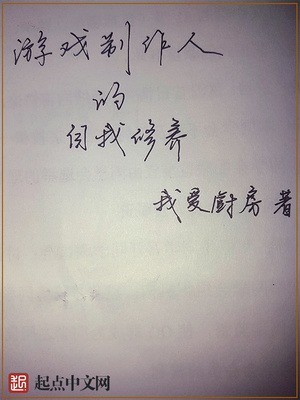 游戏制作人
的
自我修养
我爱廚房 著
起 起点中文网